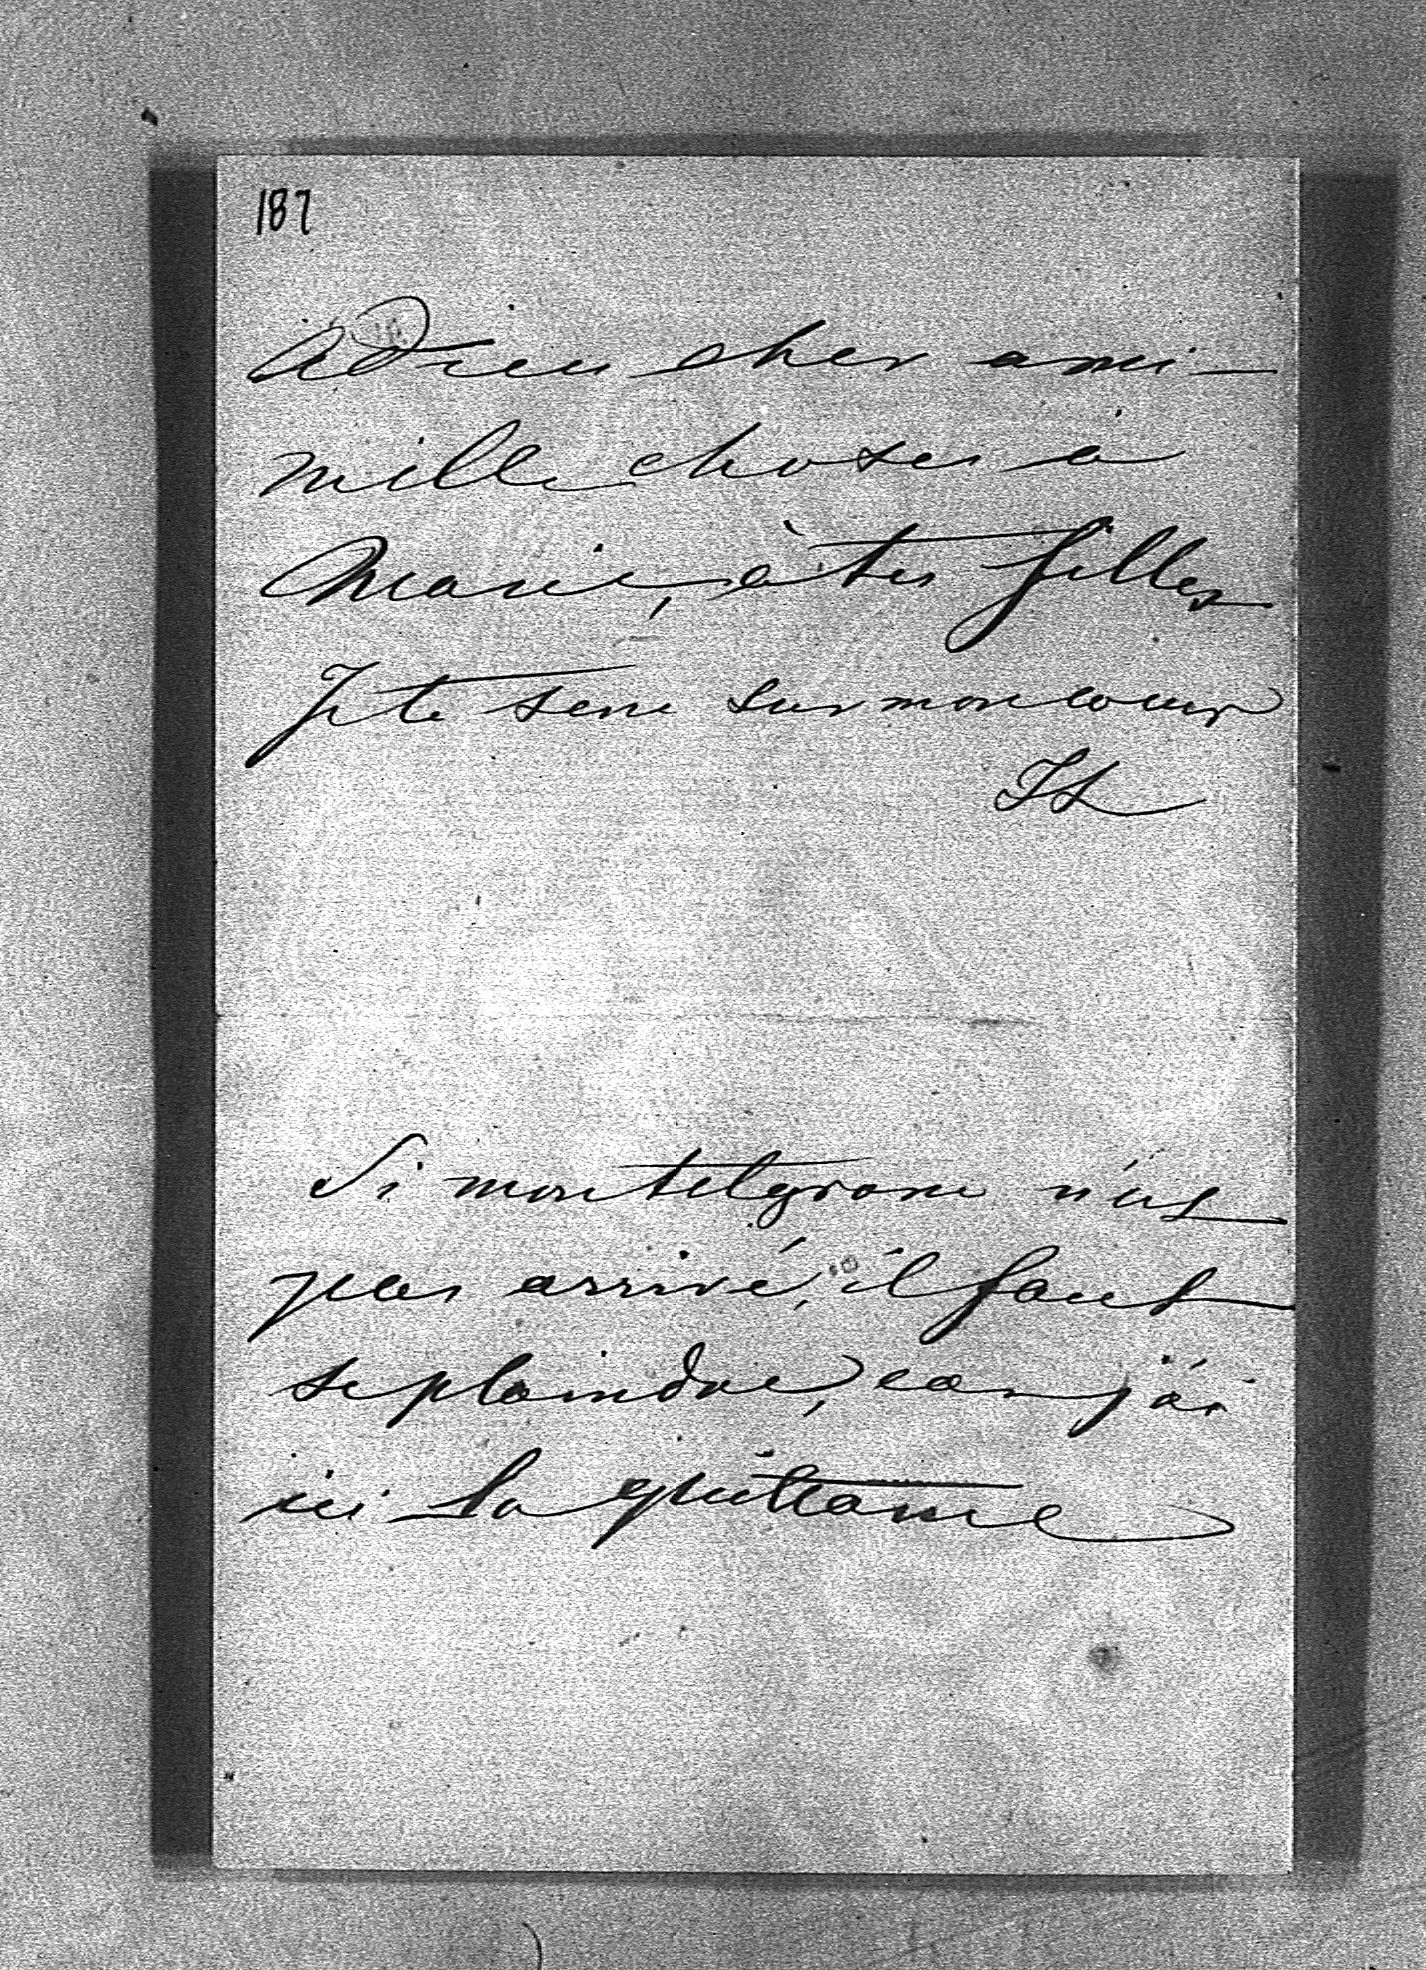 187
Adieu cher ami —
mille choses à
Marie, à tes filles
Je te serre sur mon coeur
Si mon telgrame n'est
pas arrivé, il faut
se plaindre, car j'ai
ici la quittance